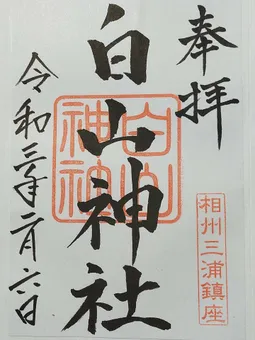 奉拝
白山神社
白山神社
相州三浦鎮座
令和三年二月六日